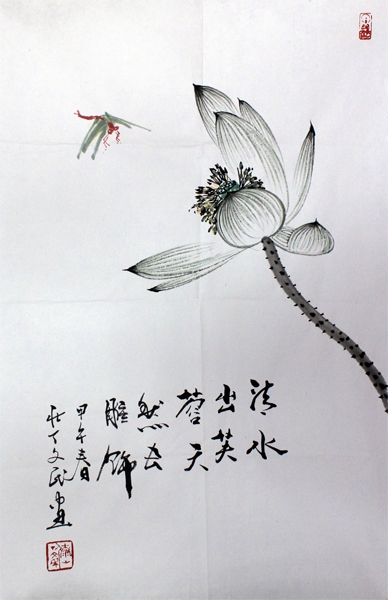 清水
出芙
蓉天
然去
雕饰
甲午春
文民画